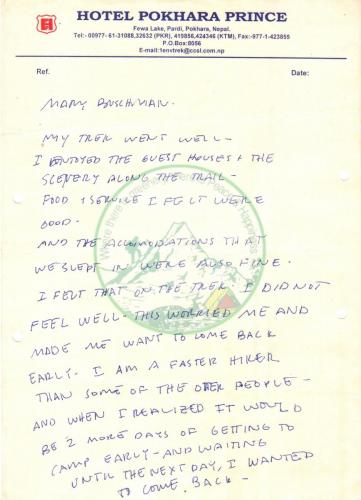 HOTEL POKHARA PRINCE
Fewa Lake, Pardi, Pokhara, Nepal.
Tel:- 00977- 61-31088,32632 (PKR), 419856,424346 (KTM), Fax:-977-1-423855
P.O.Box:8056
E-mail:tenvtrek@ccsl.com.np
Ref.
Date:
MARY BUSCHMAN.
MY TREK WENT WELL -
I ENJOYED THE GUEST HOUSES + THE
SCENERY ALONG THE TRAIL -
FOOD + SERVICE I FELT WERE
GOOD -
AND THE ACCOMODATIONS THAT
WE SLEPT IN WERE ALSO FINE.
I FELT THAT ON THE TREK I DID NOT
FEEL WELL - THIS WORRIED ME AND
MADE ME WANT TO COME BACK
EARLY. I AM A FASTER HIKER
THAN SOME OF THE OTHER PEOPLE -
AND WHEN I REALIZED IT WOULD
BE 2 MORE DAYS OF GETTING TO
CAMP EARLY - AND WAITING
UNTIL THE NEXT DAY, I WANTED
TO COME BACK -